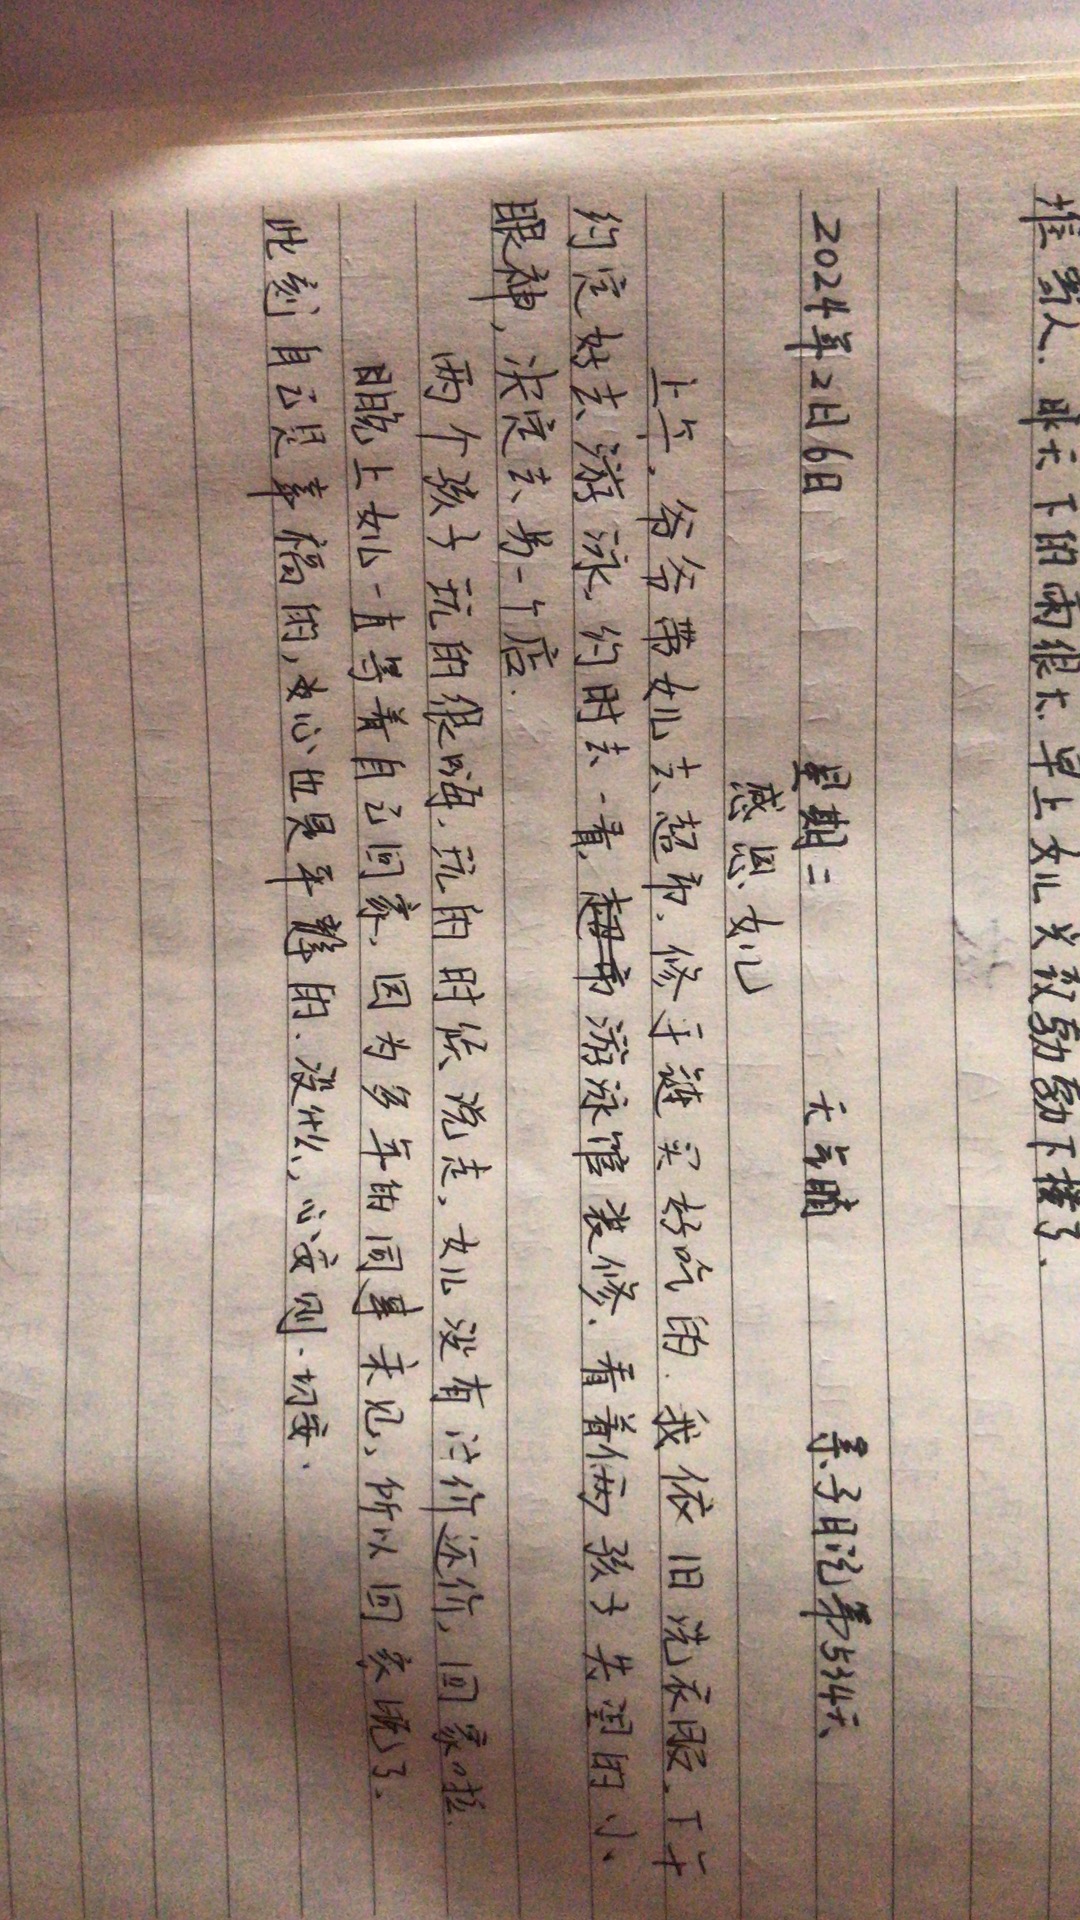 推别人. 昨天下的雨很大. 早上女儿关叔勐勐下楼了.
2024年2日6日 星期二 天气晴 亲子日记第534天
感恩女儿
上午. 爷爷带女儿去超市. 修手链买好吃的. 我依旧洗衣服. 下午
约定好去游泳. 约时去一看. 游泳馆装修. 看着俩孩子失望的小
眼神, 决定去另一个店.
两个孩子玩的很嗨. 玩的时候说走, 女儿没有讨价还价, 回家啦.
晚上女儿一直等着自己回家. 因为多年的同事来见, 所以回家晚了.
此刻自己是幸福的, 内心也是平静的. 没什么, 心安则一切安.